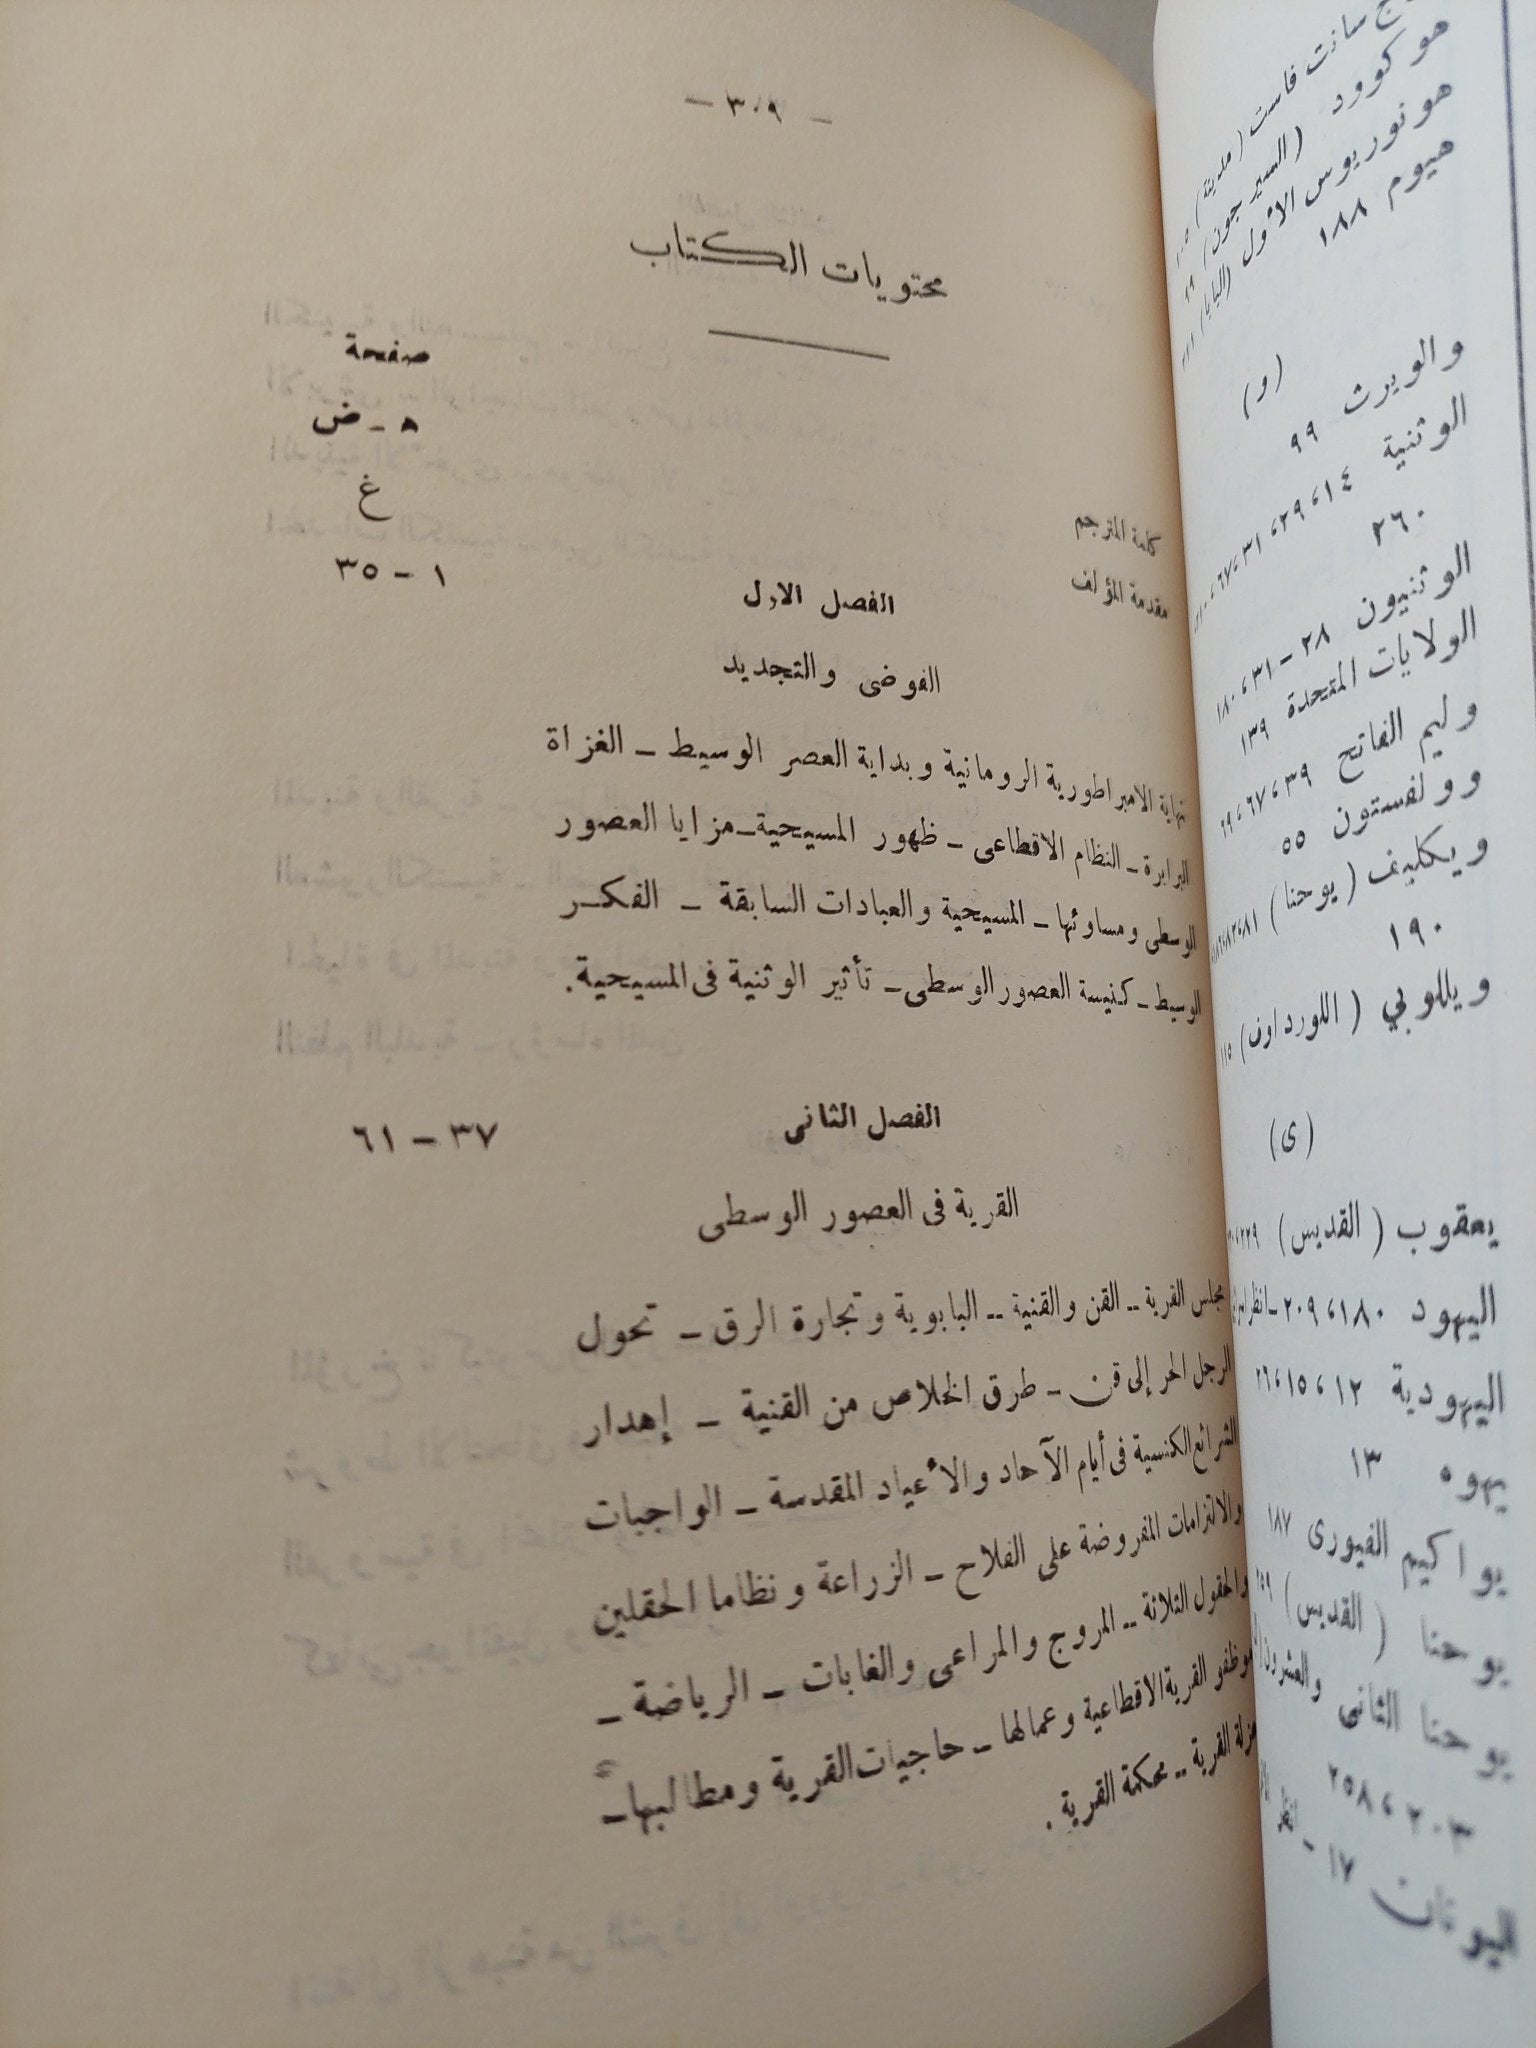 سانت فاست (مدينة) ١٠٥
هوكوود (السير جون) ٩٩
هونوريوس الأول (البابا)
هيوم ١٨٨
(و)
والويرث ٩٩
الوثنية ١٤،٢٩،٣١،٦٧،
٢٦٠
الوثنيون ٢٨-٣١،١٨٠
الولايات المتحدة ١٣٩
وليم الفاتح ٣٩،٦٧،٦٩
وولفستون ٥٥
ويكليف (يوحنا) ٨١،٨٢،
١٩٠
ويللوبي (اللورد اون) ١١٥
(ى)
يعقوب (القديس) ٢٢٩،
اليهود ١٨٠،٢٠٩-انظر
اليهودية ١٢،١٥،٢٦
يهوه ١٣
يواكيم الفيورى ١٨٧
يوحنا (القديس) ٢٥٩
يوحنا الثانى والعشرون
٢٠٣،٢٥٨
اليونان ١٧ - انظر
- ٣٠٩ -
محتويات الكتاب
صفحة
كلمة المترجم ه - ض
مقدمة المؤلف غ
الفصل الاول ١ - ٣٥
الفوضى والتجديد
نهاية الامبراطورية الرومانية وبداية العصر الوسيط - الغزاة
البرابرة - النظام الاقطاعى - ظهور المسيحية - مزايا العصور
الوسطى ومساوئها - المسيحية والعبادات السابقة - الفكر
الوسيط - كنيسة العصور الوسطى - تأثير الوثنية فى المسيحية.
الفصل الثانى ٣٧ - ٦١
القرية فى العصور الوسطى
مجلس القرية - القن والقنية - البابوية وتجارة الرق - تحول
الرجل الحر إلى قن - طرق الخلاص من القنية - إهدار
الشرائع الكنسية فى أيام الآحاد والأعياد المقدسة - الواجبات
والالتزامات المفروضة على الفلاح - الزراعة ونظاما الحقلين
والحقول الثلاثة - المروج والمراعى والغابات - الرياضة -
موظفو القرية الاقطاعية وعمالها - حاجيات القرية ومطالبها -
عزلة القرية - محكمة القرية.